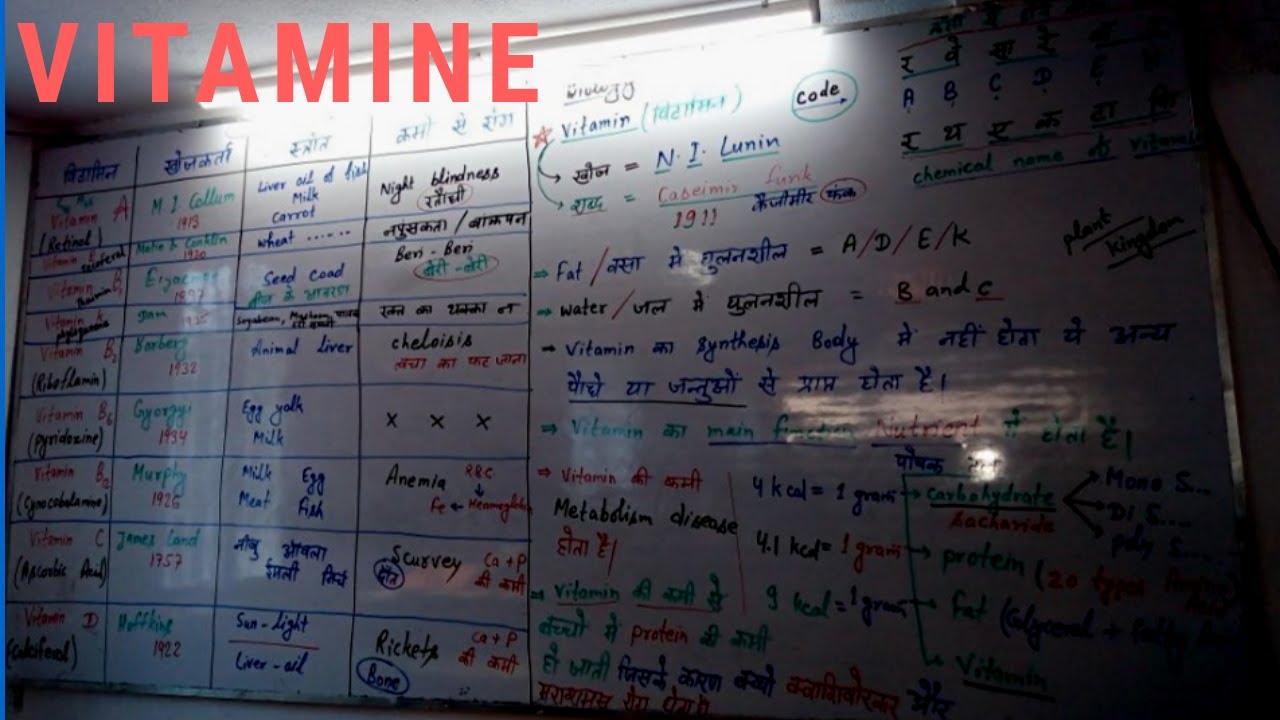 VITAMINE
विटामिन खोजकर्ता स्त्रोत कमी से रोग
Vitamin A M I Collum Liver oil of fish Night blindness
(Retinol) 1913 Milk रतौंधी
Carrot
1920 wheat ...... नपुंसकता / बांझपन
Vitamin B₁ Seed Coad Beri-Beri
1897 बीज के आवरण बेरी-बेरी
Vitamin K Dam Soyabean, रक्त का थक्का न
Vitamin B₂ Barberg Animal liver cheloisis
(Riboflamin) 1932 त्वचा का फट जाना
Vitamin B₆ Gyorgyi Egg yolk × × ×
(pyridoxine) 1934 Milk
Vitamin B₁₂ Murphy Milk Egg Anemia RBC
(Cynocobalamine) 1926 Meat fish Fe ← Heamoglobin
Vitamin C James Land नीबू आंवला Scurvey Ca + P
(Ascorbic Acid) 1757 ईमली मिर्च की कमी
Vitamin D Hoffkins Sun-light Rickets Ca + P
(Calciferol) 1922 Liver-oil Bone की कमी
Biology
Vitamin (विटामिन) code
खोज = N. I. Lunin
शब्द = Caseimir funk
1911 कैजीमीर फंक
र वे सा रे
A B C D E
र थ ए क टा
chemical name of vitamins
plant kingdom
⇒ Fat / वसा में घुलनशील = A/D/E/K
⇒ water / जल में घुलनशील = B and C
→ Vitamin का Synthesis Body में नहीं होता ये अन्य
पौधे या जन्तुओं से प्राप्त होता है।
⇒ Vitamin का main function Nutrient में होता है।
पोषक
⇒ Vitamin की कमी
Metabolism disease
होता है।
4 kcal = 1 gram → carbohydrate
Sacharide
Mono S...
Di S....
poly S....
4.1 kcal = 1 gram → protein (20 types
9 kcal = 1 gram → Fat (Glycerol +
Vitamin
⇒ Vitamin की कमी से
बच्चो में protein की कमी
हो जाती जिसके कारण बच्चो क्वाशियोरकर और
रोग होता